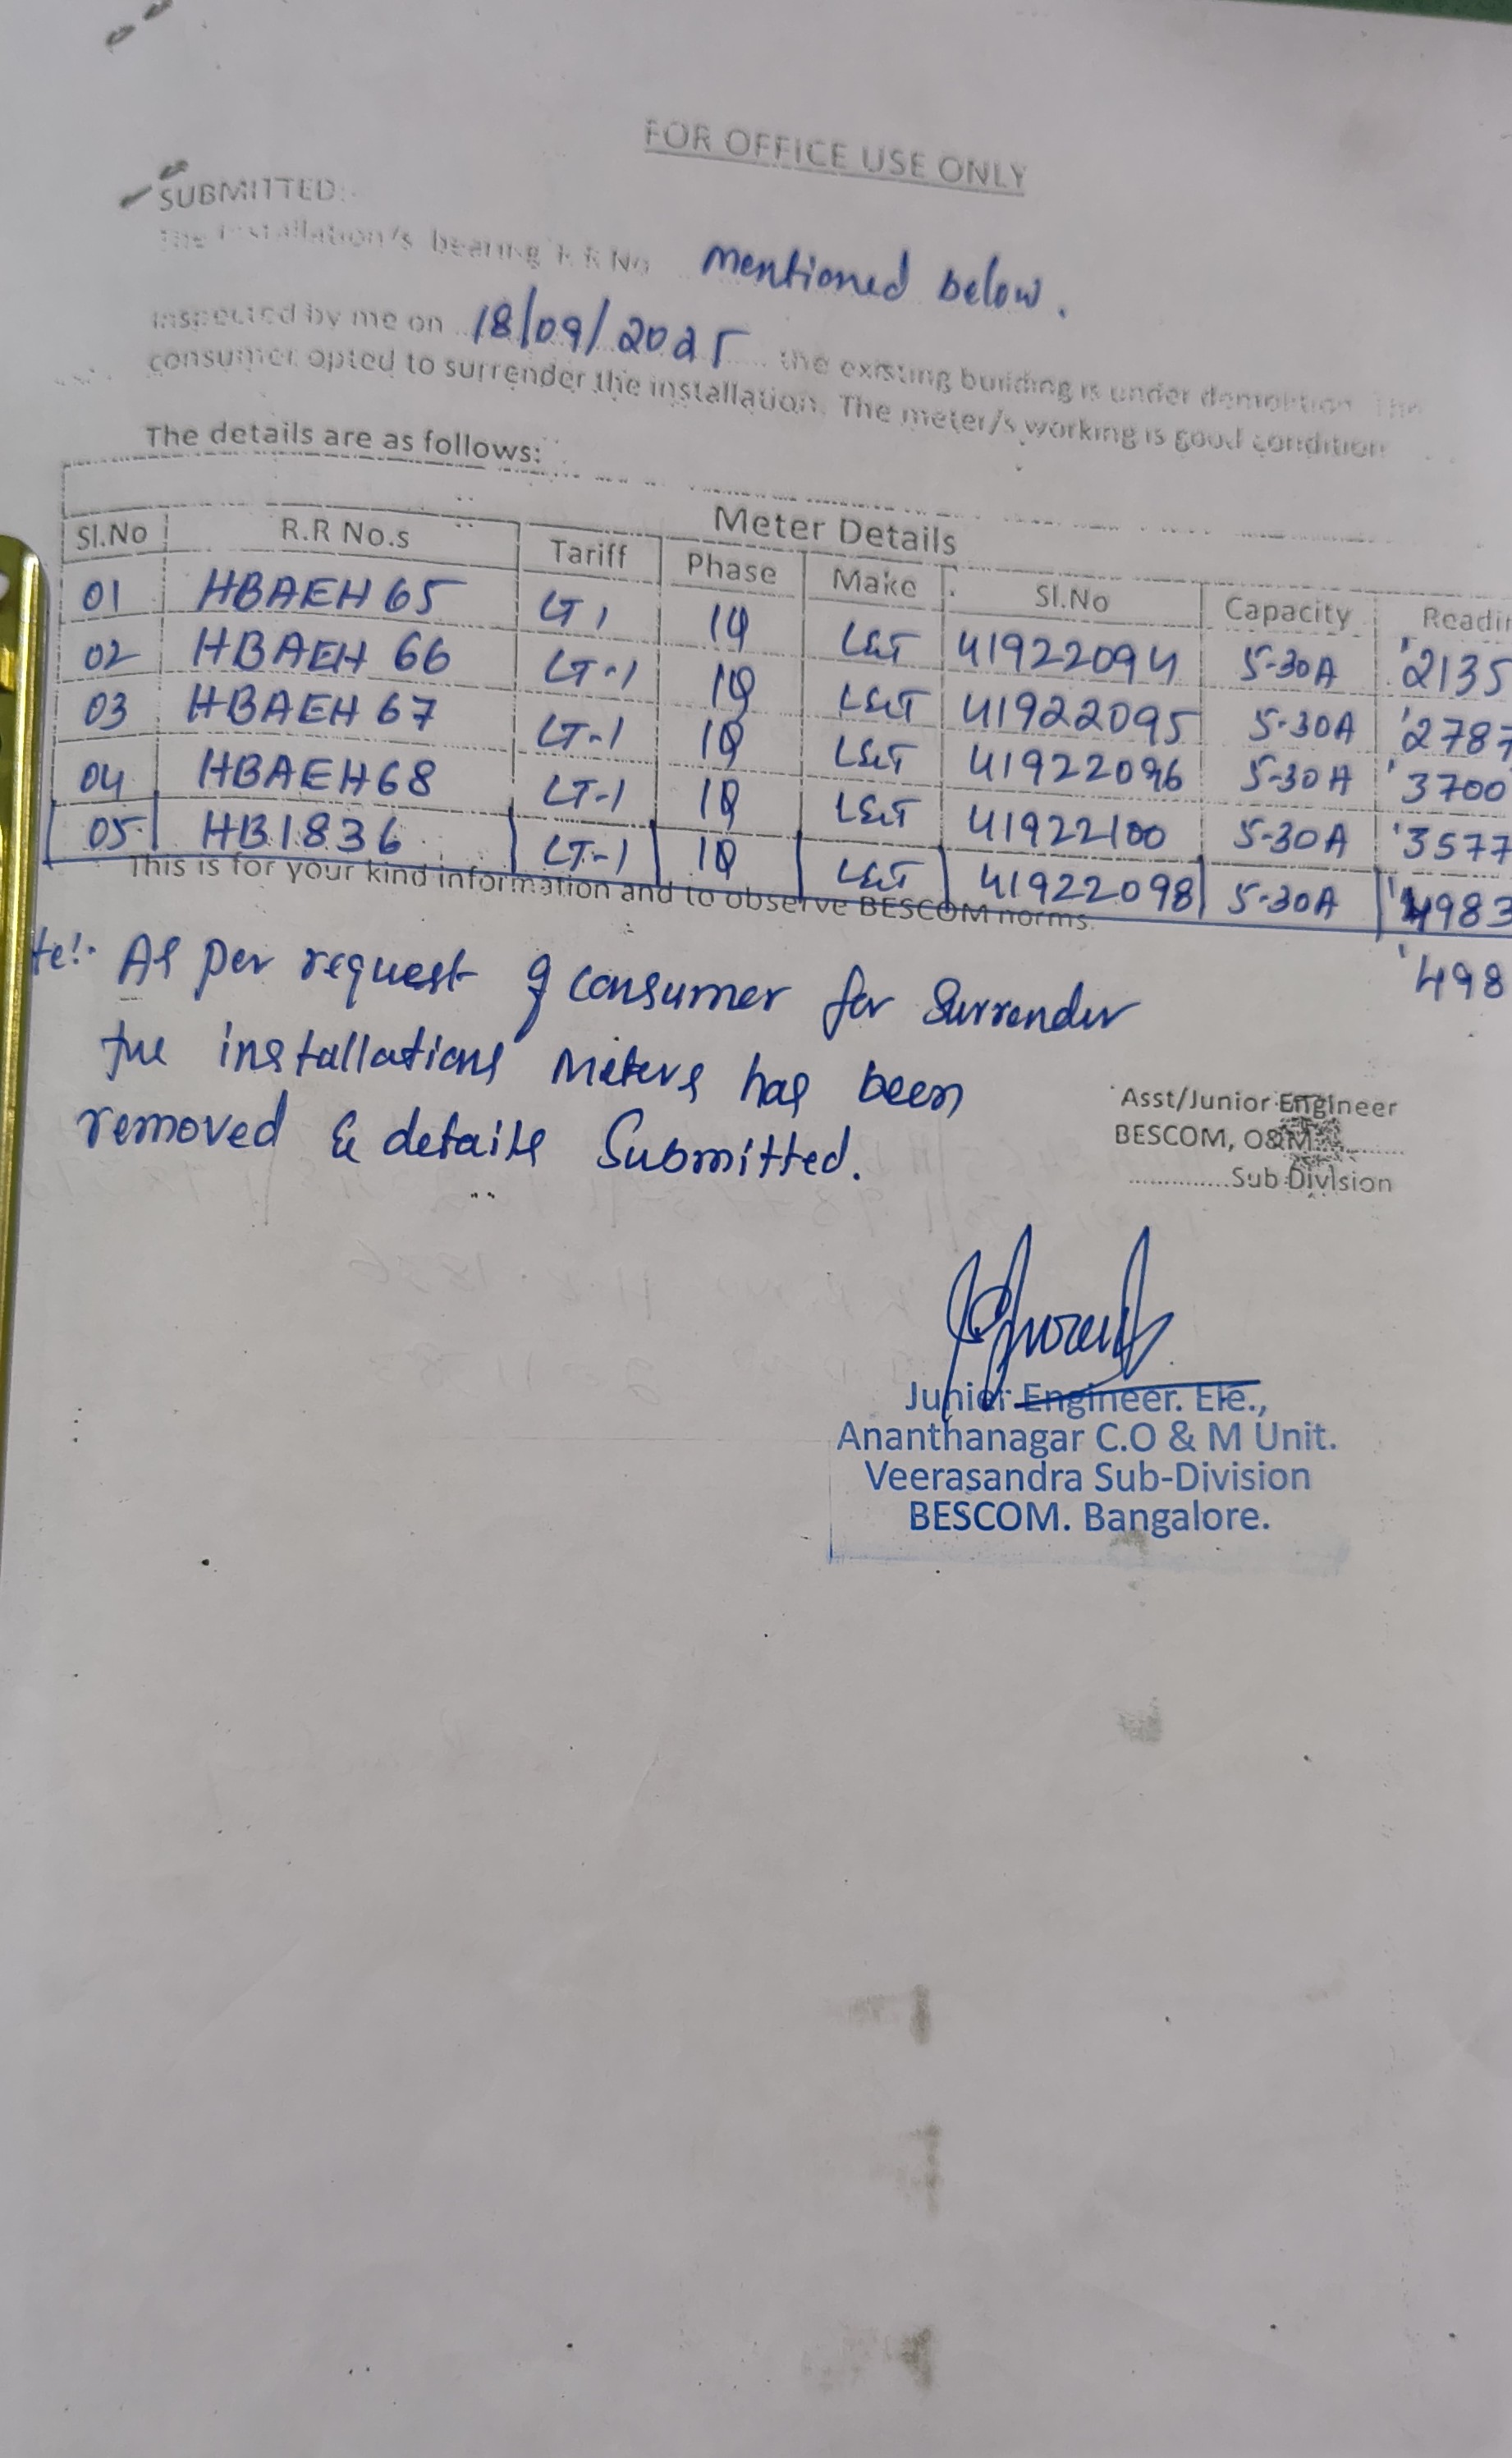 FOR OFFICE USE ONLY
SUBMITTED:
The installation/s bearing R R No mentioned below.
inspected by me on 18/09/2025 the existing building is under demolition. The
consumer opted to surrender the installation. The meter/s working is good condition
The details are as follows:
Meter Details
Sl.No R.R No.s Tariff Phase Make Sl.No Capacity Readin
01 HBAEH 65 LT 1 1Φ L&T 41922094 5-30A '2135
02 HBAEH 66 LT-1 1Φ L&T 41922095 5-30A '2787
03 HBAEH 67 LT-1 1Φ L&T 41922096 5-30A '3700
04 HBAEH68 LT-1 1Φ L&T 41922100 5-30A '3577
05 HB1836 LT-1 1Φ L&T 41922098 5-30A '4983
This is for your kind information and to observe BESCOM norms.
'498
te:- As per request of consumer for Surrender
the installations Meters has been
removed & details Submitted.
Asst/Junior Engineer
BESCOM, O&M..........
..............Sub Division
Junior Engineer. Ele.,
Ananthanagar C.O & M Unit.
Veerasandra Sub-Division
BESCOM. Bangalore.